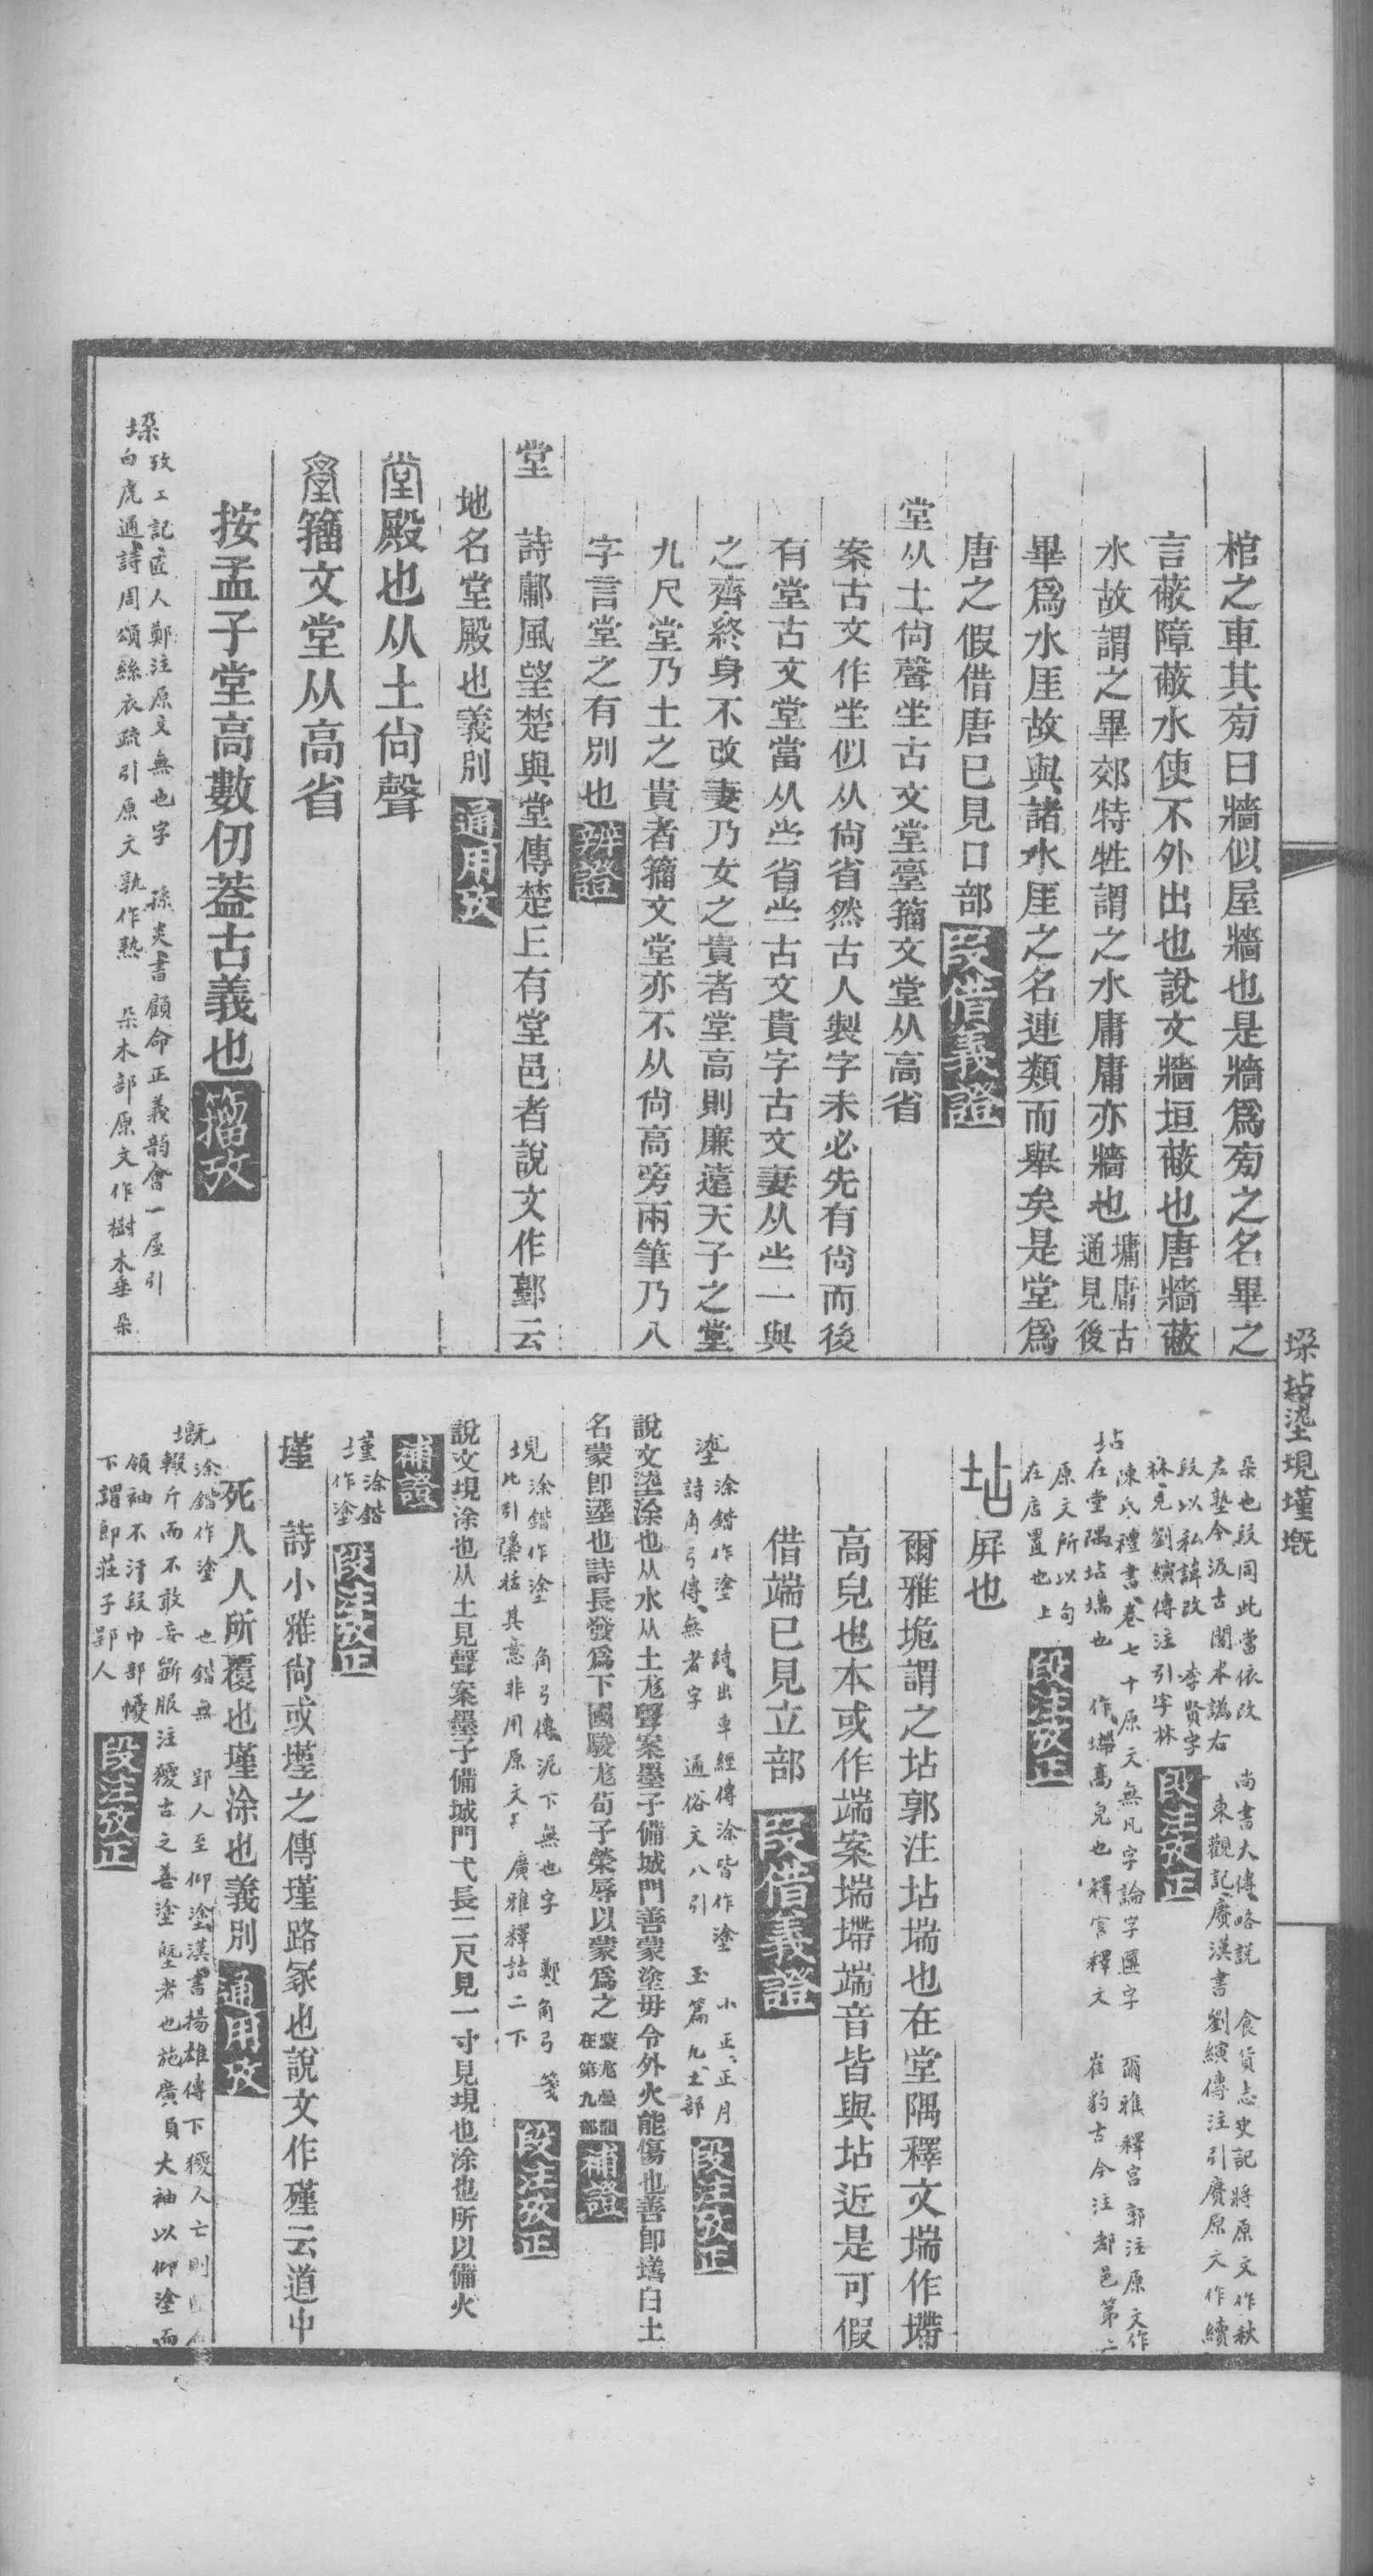 棺之車其旁曰牆似屋牆也是牆爲旁之名畢之
言蔽障蔽水使不外出也說文牆垣蔽也唐牆蔽
水故謂之畢郊特牲謂之水庸庸亦牆也墉庸古
通見後
畢爲水厓故與諸水厓之名連類而舉矣是堂爲
唐之假借唐已見口部段借義證
堂从土尙聲坐古文堂臺籒文堂从高省
案古文作坐似从尙省然古人製字未必先有尙而後
有堂古文堂當从㞢省㞢古文貴字古文妻从㞢一與
之齊終身不改妻乃女之貴者堂高則廉遠天子之堂
九尺堂乃土之貴者籒文堂亦不从尙高旁兩筆乃八
字言堂之有別也辨證
堂 詩鄘風望楚與堂傳楚丘有堂邑者說文作鄞云
地名堂殿也義別通用攷
堂殿也从土尙聲
籒文堂从高省
按孟子堂高數仞蓋古義也籒攷
垜攷工記匠人鄭注原文無也字 孫炎書顧命正義韵會一屋引
白虎通詩周頌絲衣疏引原文孰作熟 朵木部原文作樹木垂朵
垜坫塗垷墐墍
朵也段同此當依改 尚書大傳略説 食貨志史記將原文作秋
左塾今汲古閣本譌右 東觀記後漢書劉縯傳注引賡原文作續
段以私諱改 李賢字
林見劉縯傳注引字林 段注攷正
坫陳氏禮書卷七十原文無凡字論字匯字 爾雅釋宮郭注原文作
在堂隅坫㙐也 作墆高皃也釋宮釋文 崔豹古今注都邑第二
原文所以句
在店置也上 段注攷正
坫屏也
爾雅垝謂之坫郭注坫㙐也在堂隅釋文㙐作墆
高皃也本或作端案㙐墆端音皆與坫近是可假
借端已見立部 段借義證
塗涂鍇作塗 詩出車經傳涂皆作塗 小正正月
詩角弓傳無者字 通俗文八引 玉篇九土部 段注攷正
說文塗涂也从水从土尨聲案墨子備城門善蒙塗毋令外火能傷也善卽墡白土
名蒙卽塗也詩長發爲下國駿尨荀子榮辱以蒙爲之在第九部補證
垷涂鍇作塗 角弓傳泥下無也字 鄭角弓箋
比引檃栝其意非用原文 廣雅釋詁二下 段注攷正
說文垷涂也从土見聲案墨子備城門弋長二尺見一寸見垷也涂也所以備火
補證
墐涂鍇
作塗 段注攷正
墐 詩小雅尙或墐之傳墐路冢也說文作殣云道中
死人人所覆也墐涂也義別通用攷
墍涂鍇作塗 也鍇無 郢人至仰塗漢書揚雄傳下獿人亡則匠
輟斤而不敢妄斲服注獿古之善塗塈者也施廣領大袖以仰塗而
領袖不汙段巾部㡓
下謂卽莊子郢人 段注攷正